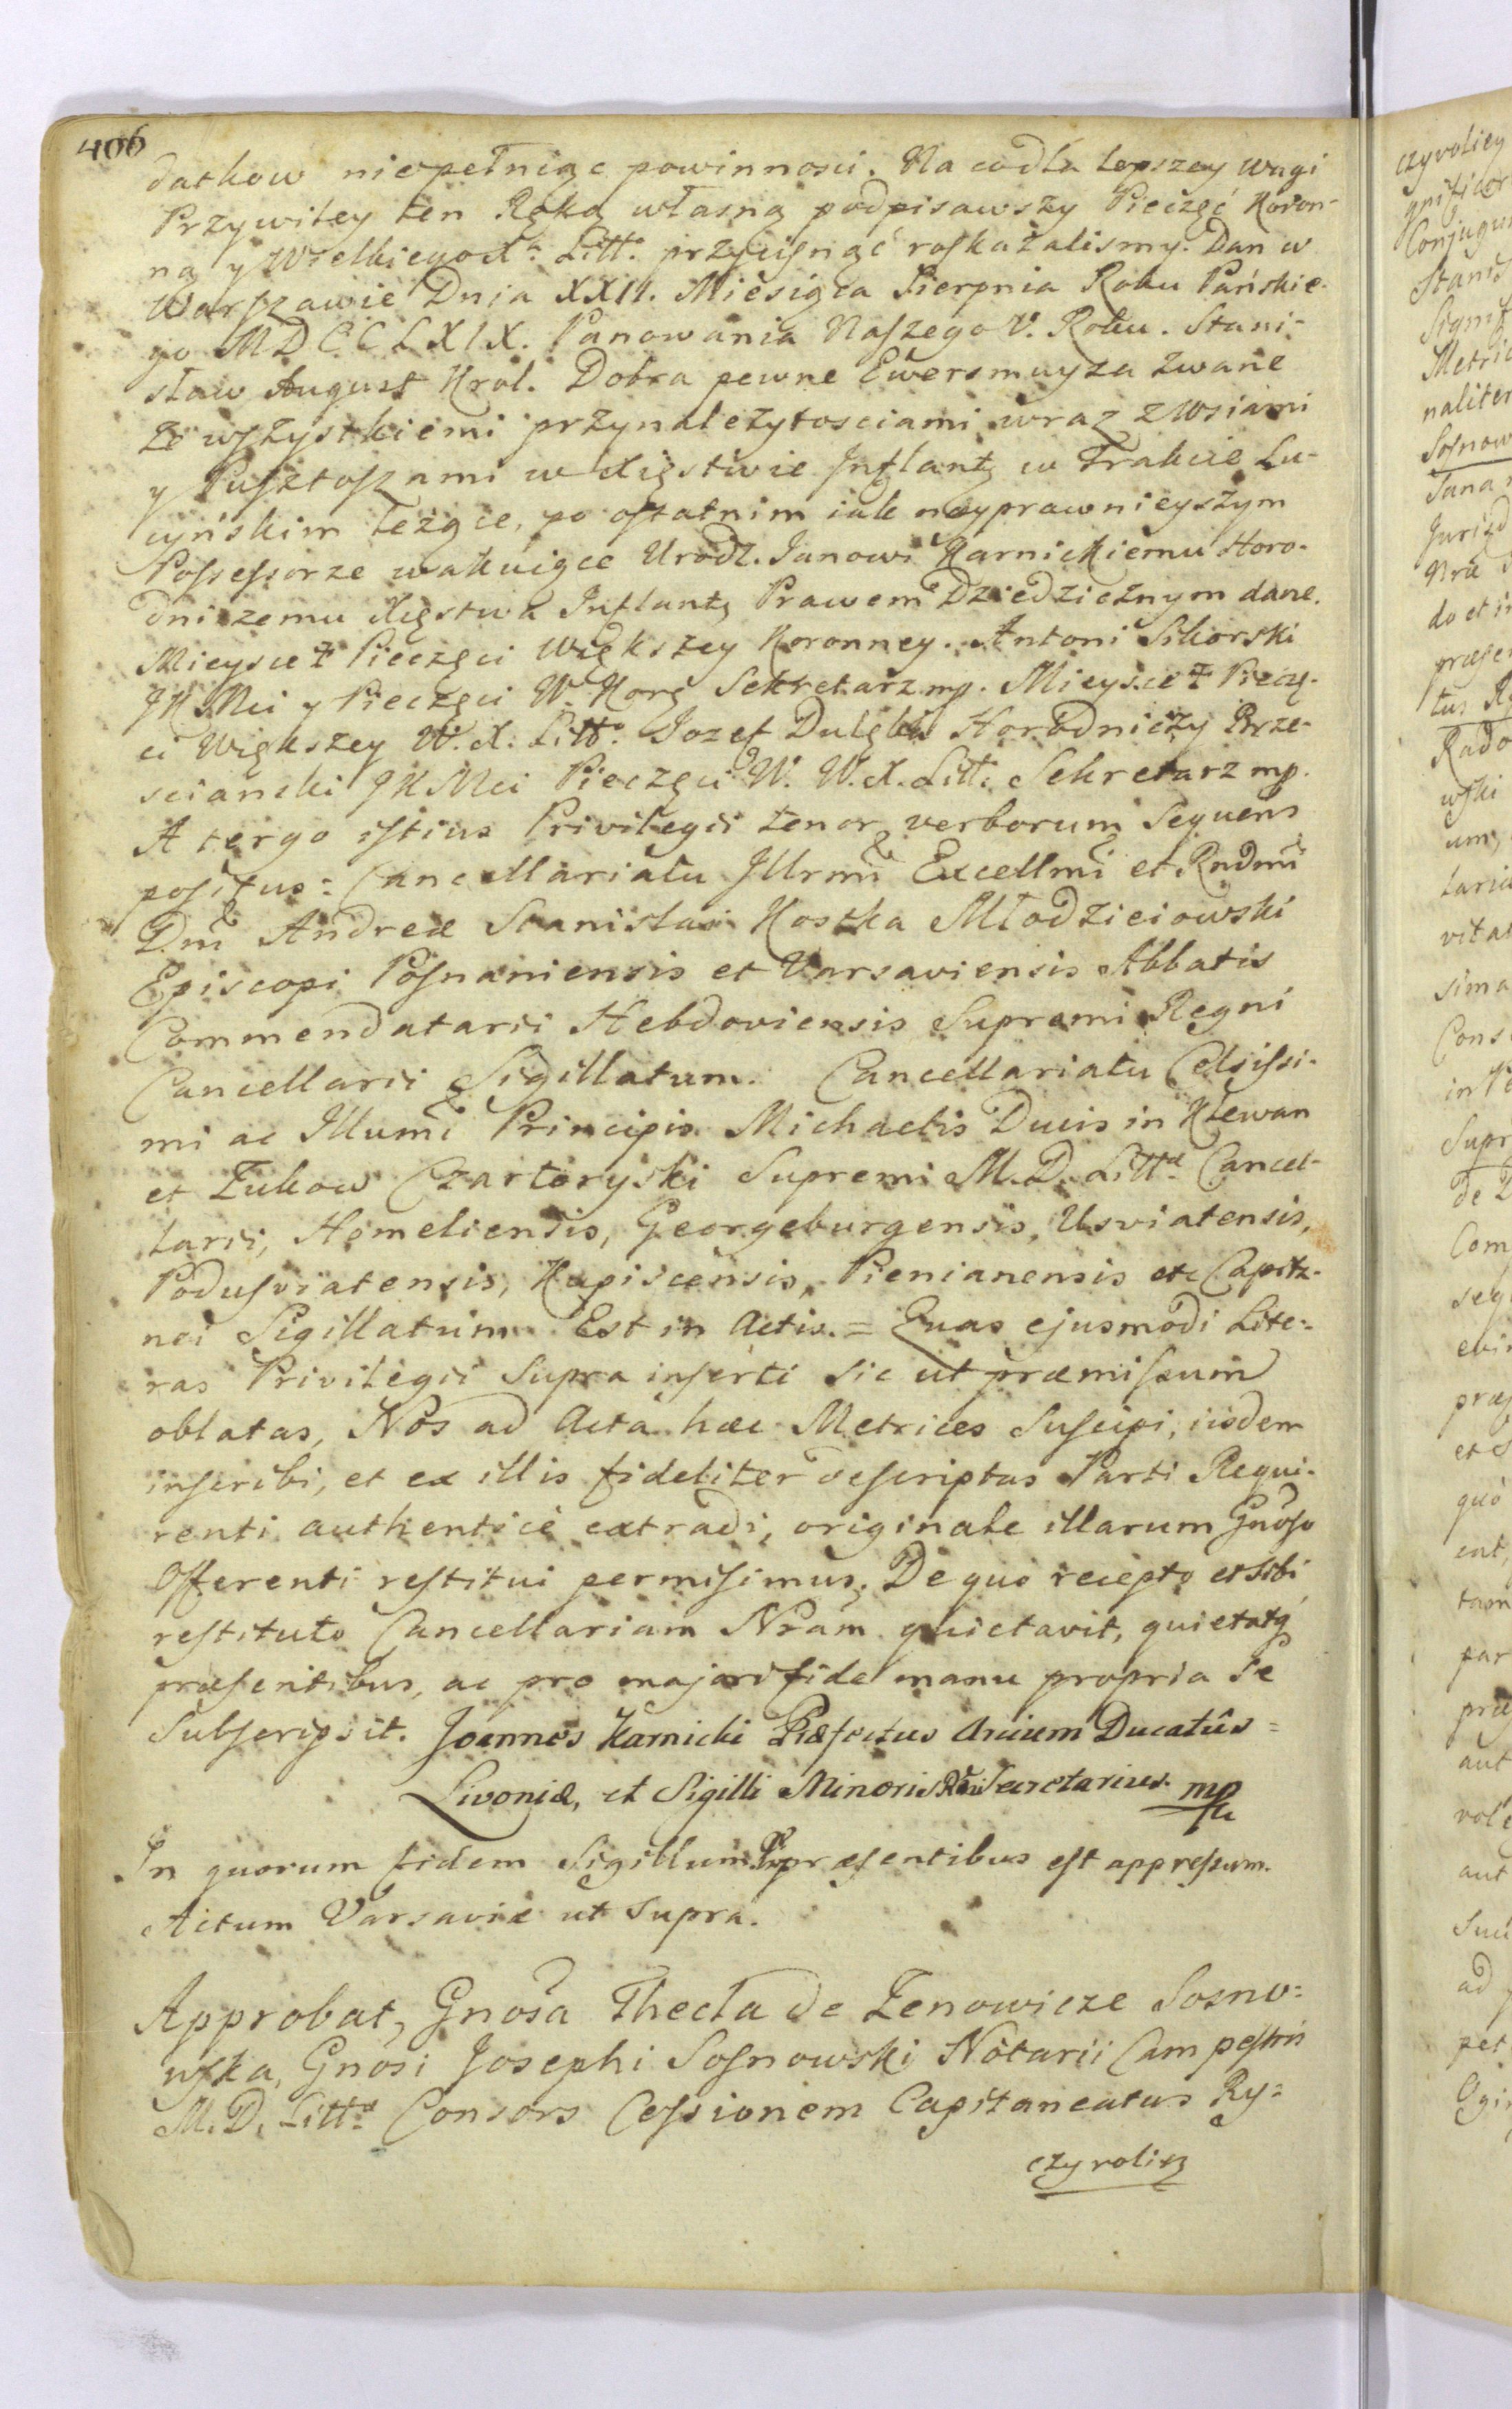 406
datkow niepełniąc powinnosci. Na co dla lepszey wagi
Przywiley ten Ręką własną podpisawszy Pieczęć Koron-
ną y Wielkiego X. Litt. przycisnąć roskazalismy. Dan w
Warszawie Dnia XXII. Miesiąca Sierpnia Roku Pańskie-
go MDCCLXIX. Panowania Naszego V. Roku. Stani-
sław August Krol. Dobra pewne Ewersmuyza zwane
ze wszystkiemi przynależytosciami wraz z Wsiami
y Pusztoszami w Xięstwie Inflantę w Trakcie Lu-
cyńskim leżące, po ostatnim iak nayprawnieyszym
Possessorze wakuiące Urodz. Janowi Karnickiemu Horo-
dniczemu Xięstwa Inflantę Prawem Dziedzicznym dane.
Mieysce ☩ Pieczęci Większey Koronney. Antoni Sikorski
JKMci y Pieczęci W. Korę Sekretarz mp. Mieysce ☩ Pieczę-
ci Większey W. X. Litt. Jozef Dulęba Horodniczy Brze-
scianski JKMci Pieczęci W. W. X. Litt. Sekretarz mp.
A tergo istius Privilegii tenor verborum Sequens
positus: Cancellariatu Illrmi Excellmi et Rndmi
Dni Andreæ Stanislai Kostka Młodzieiowski
Episcopi Posnaniensis et Varsaviensis Abbatis
Commendatarii Hebdoviensis Supremi Regni
Cancellarii Sigillatum. Cancellariatu Celsissi-
mi ac Illumi Principis Michaelis Ducis in Klewan
et Zukow Czartoryski Supremi M. D. Littæ Cancel-
larii, Homeliensis, Georgeburgensis, Usviatensis,
Podusviatensis, Kupiscensis, Pienianensis etc Capita-
nei Sigillatum. Est in Actis. = Quas ejusmodi Lite-
ras Privilegii Supra inserti sic ut præmissum
oblatas, Nos ad Acta hæc Metrices Suscipi, iisdem
inscribi, et ex illis fideliter descriptas Parti Requi-
renti authenticè extradi, originale illarum Gnoso
Offerenti restitui permisimus. De quo recepto et sibi
restituto Cancellariam Nram quietavit, quietatq
præsentibus, ac pro majori fide manu propria Se
Subscripsit. Joannes Karnicki Præfectus Arcium Ducatûs =
Livoniæ, et Sigilli Minoris Rni Secretarius. mp
In quorum fidem Sigillum præsentibus est appressum.
Actum Varsaviæ ut Supra.
Approbat, Gnosa Thecla de Zenowicze Sosno=
wska, Gnosi Josephi Sosnowski Notarii Campestris
M. D. Littæ Consors Cessionem Capitaneatus Ry=
czyvoliey